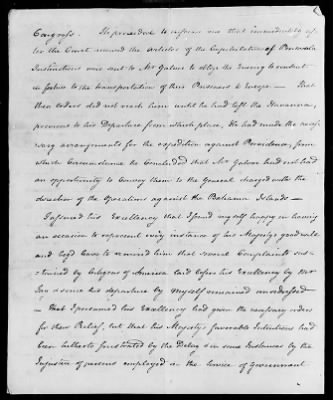 Congress. He proceeded to inform me that immediately af-
ter the Court received the Articles of the Capitulation of Pensacola
Instructions were sent to Mr Galvez to oblige the Enemy to conduct
in future to the transportation of their Prisoners to Europe — That
these orders did not reach him until he had left the Havannah,
previous to his Departure from which place, He had made the neces-
sary arrangements for the expedition against Providence, from
which Circumstance he Concluded that Mr Galvez had not had
an opportunity to Convey them to the General charged with the
direction of the Operations against the Bahama Islands —
I assured his Excellency that I found myself happy in having
an occasion to represent every instance of his Majesty's good will
and beg'd leave to remind him that several Complaints sus-
tained by Citizens of America laid before his Excellency by Mr
Jay & since his departure by myself remained unredressed
— That I presumed his Excellency had given the necessary orders
for their Relief, but that his Majesty's favorable Intentions had
been hitherto frustrated by the Delay & in some Instances by the
Injustice of persons employed in the service of Government